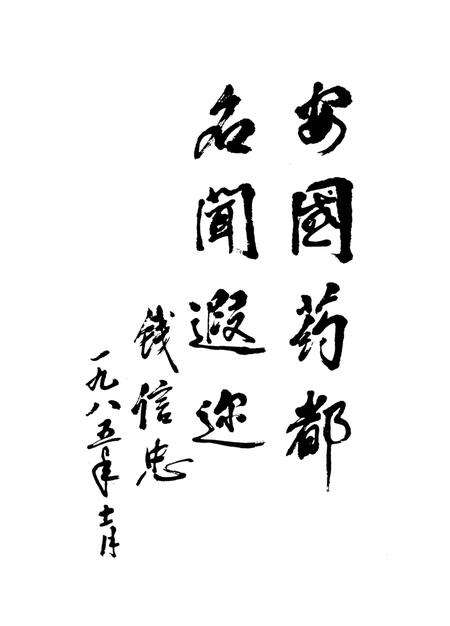 安國药都
名聞遐迩
錢信忠
一九八五年十一月